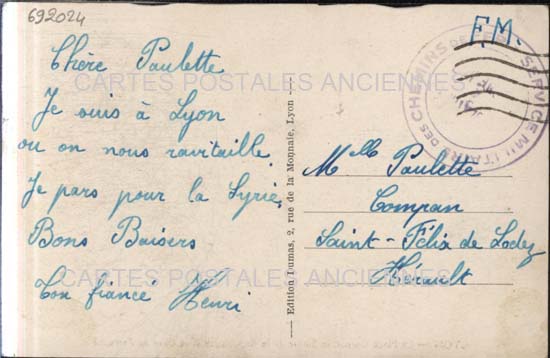 692024
F.M.
CHEMINS DE FER SERVICE MILITAIRE DES
Chère Paulette
CARTES POSTALES ANCIENNES
Je suis à Lyon
ou on nous ravitaille.
Je pars pour la Syrie.
Bons Baisers
Ton fiancé Henri
Edition Dumas, 2, rue de la Monnaie, Lyon
Mlle Paulette
Compan
Saint-Félix de Lodez
Hérault
CARTES POSTALES ANCIENNES